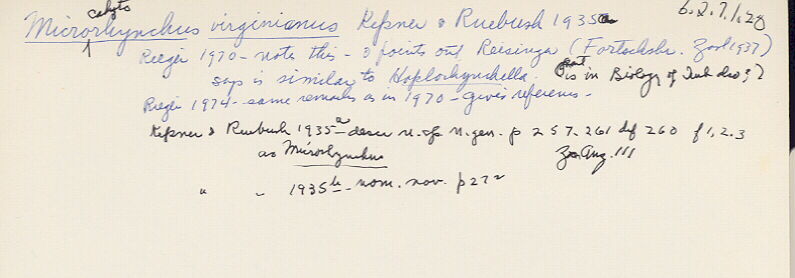 calypto
Microrhynchus virginianus Kepner & Ruebush 1935a 6.2.7.1.28
Rieger 1970 - notes this - & points out Reisinger (Fortschchr. Zool 1937)
says is similar to Haplorhynchella. Part is in Biology of Turb dro ; ?
Rieger 1974 - same remarks as in 1970 - gives reference -
Kepner & Ruebush 1935a - descr n.sp. n.gen. p 257. 261 def 260 f 1,2.3
as Microrhynchus Zoo. Anz. 111
" " 1935b - nom. nov. p 272